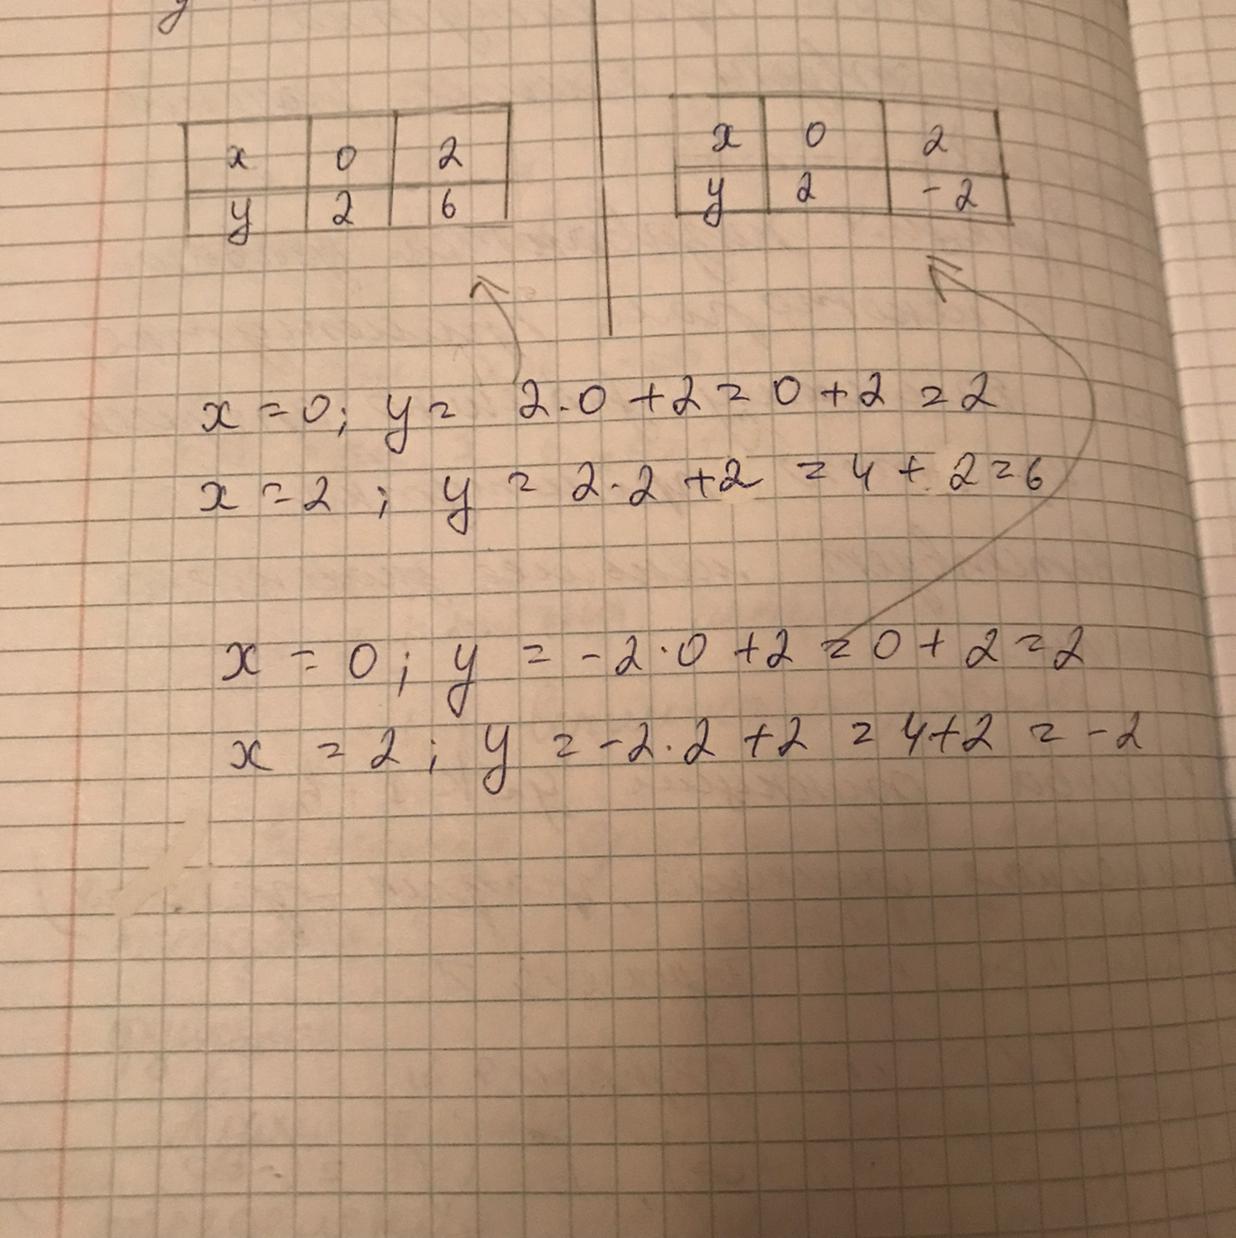 y
x 0 2
y 2 6
x 0 2
y 2 -2
x = 0; y = 2·0 + 2 = 0 + 2 = 2
x = 2; y = 2·2 + 2 = 4 + 2 = 6
x = 0; y = -2·0 + 2 = 0 + 2 = 2
x = 2; y = -2·2 + 2 = 4+2 = -2